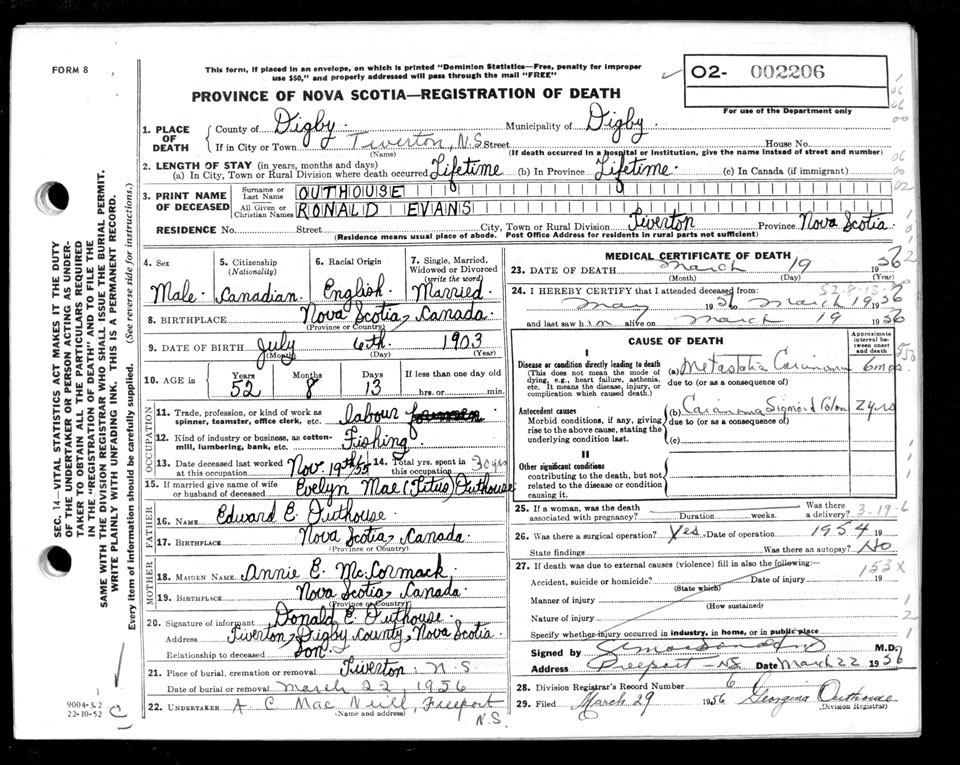 FORM 8
This form, if placed in an envelope, on which is printed "Dominion Statistics—Free, penalty for improper
use $50," and properly addressed will pass through the mail "FREE"
02- 002206
For use of the Department only
PROVINCE OF NOVA SCOTIA—REGISTRATION OF DEATH
1. PLACE OF DEATH
County of Digby. Municipality of Digby.
If in City or Town Tiverton, N.S. Street House No.
(Name) (If death occurred in a hospital or institution, give the name instead of street and number)
2. LENGTH OF STAY (in years, months and days)
(a) In City, Town or Rural Division where death occurred Lifetime (b) In Province Lifetime. (c) In Canada (if immigrant)
3. PRINT NAME OF DECEASED
Surname or Last Name OUTHOUSE
All Given or Christian Names RONALD EVANS
RESIDENCE No. Street City, Town or Rural Division Tiverton Province Nova Scotia
(Residence means usual place of abode. Post Office Address for residents in rural parts not sufficient)
4. Sex
Male.
5. Citizenship (Nationality)
Canadian.
6. Racial Origin
English.
7. Single, Married, Widowed or Divorced (write the word)
Married.
8. BIRTHPLACE Nova Scotia, Canada.
(Province or Country)
9. DATE OF BIRTH July 6th. 1903
(Month) (Day) (Year)
10. AGE in Years 52 Months 8 Days 13 If less than one day old
hrs. or min.
OCCUPATION
11. Trade, profession, or kind of work as spinner, teamster, office clerk, etc. labour
12. Kind of industry or business, as cotton-mill, lumbering, bank, etc. Fishing
13. Date deceased last worked at this occupation Nov. 19th/55
14. Total yrs. spent in this occupation 30 yrs
15. If married give name of wife or husband of deceased Evelyn Mae (Titus) Outhouse
FATHER
16. NAME Edward E. Outhouse.
17. BIRTHPLACE Nova Scotia, Canada.
(Province or Country)
MOTHER
18. MAIDEN NAME Annie E. McCormack.
19. BIRTHPLACE Nova Scotia, Canada.
(Province or Country)
20. Signature of informant Donald E. Outhouse.
Address Tiverton, Digby County, Nova Scotia.
Relationship to deceased Son.
21. Place of burial, cremation or removal Tiverton. N.S.
Date of burial or removal March 22 1956
22. UNDERTAKER A. C. MacNeill, Freeport N.S.
(Name and address)
MEDICAL CERTIFICATE OF DEATH
23. DATE OF DEATH March 19 1956
(Month) (Day) (Year)
24. I HEREBY CERTIFY that I attended deceased from: 52-8-13-
May 1956 March 19 1956
and last saw him alive on March 19 1956
CAUSE OF DEATH
Approximate interval between onset and death
I
Disease or condition directly leading to death
(This does not mean the mode of dying, e.g., heart failure, asthenia, etc. It means the disease, injury, or complication which caused death.)
(a) 6 mos.
due to (or as a consequence of)
Antecedent causes
Morbid conditions, if any, giving rise to the above cause, stating the underlying condition last.
(b) Carcinoma Sigmoid Colon 2 yrs
due to (or as a consequence of)
(c)
II
Other significant conditions
contributing to the death, but not related to the disease or condition causing it.
25. If a woman, was the death associated with pregnancy? Duration weeks. Was there a delivery? 3-19-6
26. Was there a surgical operation? Yes Date of operation 1954 19
State findings Was there an autopsy? No
27. If death was due to external causes (violence) fill in also the following:— 153X
Accident, suicide or homicide? Date of injury 19
(State which)
Manner of injury
(How sustained)
Nature of injury
Specify whether injury occurred in industry, in home, or in public place
Signed by M.D.
Address Freeport - NS Date March 22 1956
28. Division Registrar's Record Number 6
29. Filed March 29 1956 Georgina Outhouse
(Division Registrar)
SEC. 14—VITAL STATISTICS ACT MAKES IT THE DUTY
OF THE UNDERTAKER OR PERSON ACTING AS UNDER-
TAKER TO OBTAIN ALL THE PARTICULARS REQUIRED
IN THE "REGISTRATION OF DEATH" AND TO FILE THE
SAME WITH THE DIVISION REGISTRAR WHO SHALL ISSUE THE BURIAL PERMIT.
WRITE PLAINLY WITH UNFADING INK. THIS IS A PERMANENT RECORD.
Every item of information should be carefully supplied. (See reverse side for instructions.)
9004-3.2
22-10-52 C